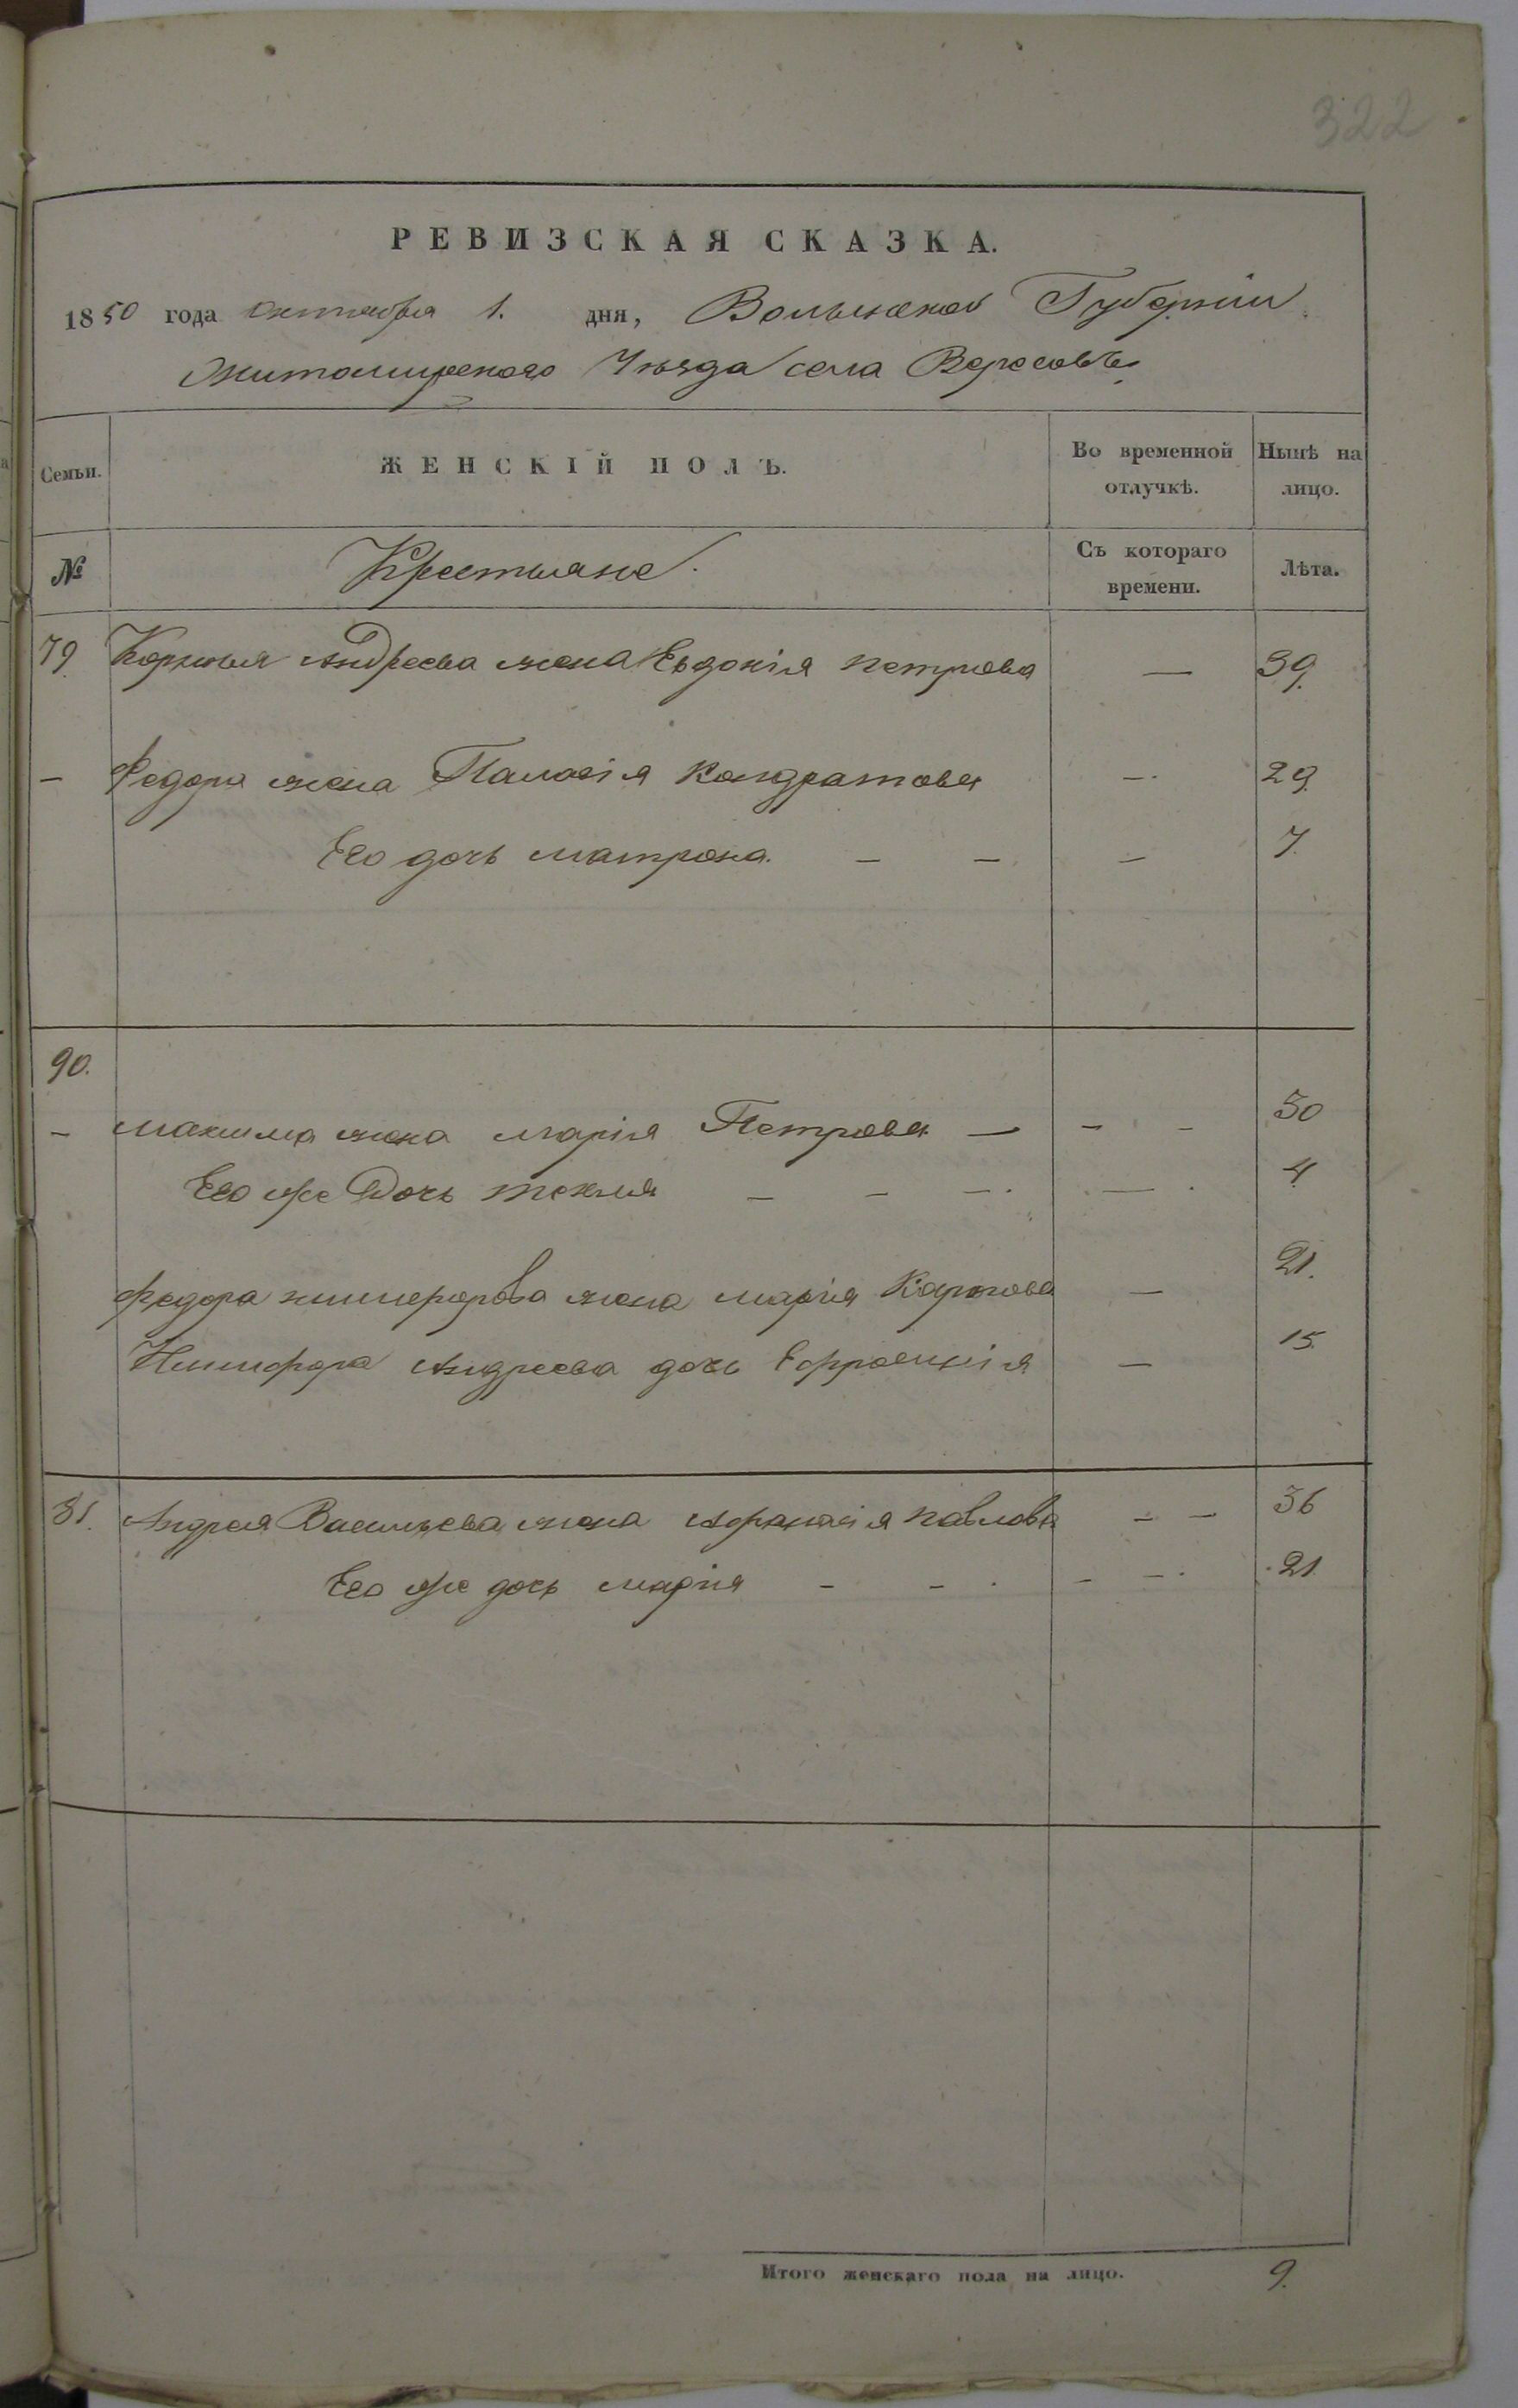 322
РЕВИЗСКАЯ СКАЗКА.
1850 года октября 1. дня, Волынской Губернии
Житомирского Уѣзда села Вересовъ
Семьи. ЖЕНСКІЙ ПОЛЪ. Во временной отлучкѣ. Нынѣ на лицо.
№ Крестьяне. Съ котораго времени. Лѣта.
79 Корнилія Андреева жена Евдокія петрова — 39.
— Федора жена Палагія Кондратова —. 29.
Его дочь матрона. — — — 7.
90.
— максима жена марія Петрова — — — 30
Его же Дочь текля — — —. —. 4.
федора никифорова жена марія Карпова — 21.
Никифора Андреева дочь Ефросинія — 15.
31. Андрея Васильева жена Афанасія павлова — — 36
Его же дочь марія — —. — —. 21.
Итого женскаго пола на лицо. 9.